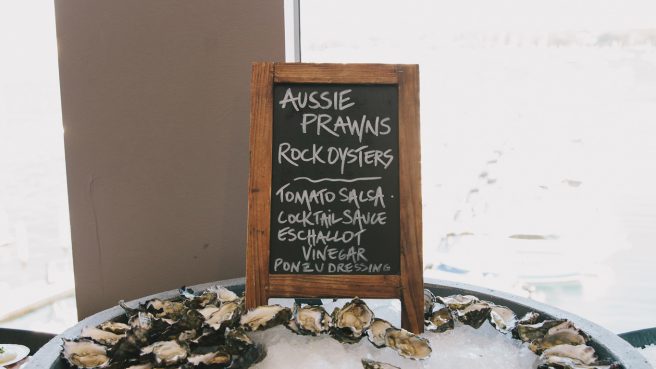 AUSSIE
PRAWNS
ROCK OYSTERS
TOMATO SALSA.
COCKTAIL SAUCE
ESCHALLOT
VINEGAR
PONZU DRESSING